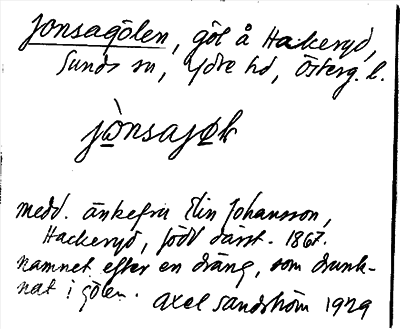 Jonsagölen, göl å Hackeryd,
Sunds sn, Ydre hd, Österg. l.
jònsajøḷ
medd. änkefru Elin Johansson,
Hackeryd, född därst. 1867.
Namnet efter en dräng, som drunk-
nat i gölen. Axel Sandström 1929